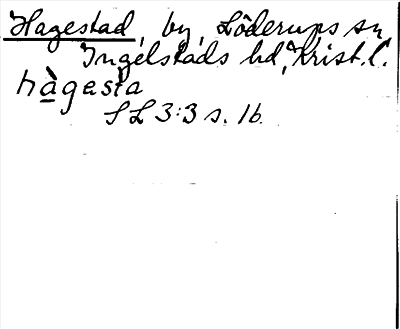 Hagestad, by, Löderups sn,
Ingelstads hd, Krist. l.
hàgesta
SL 3:3 s. 16.